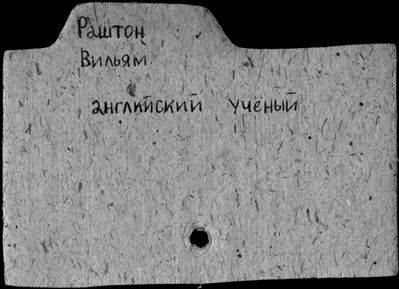 Раштон
Вильям
английский учёный